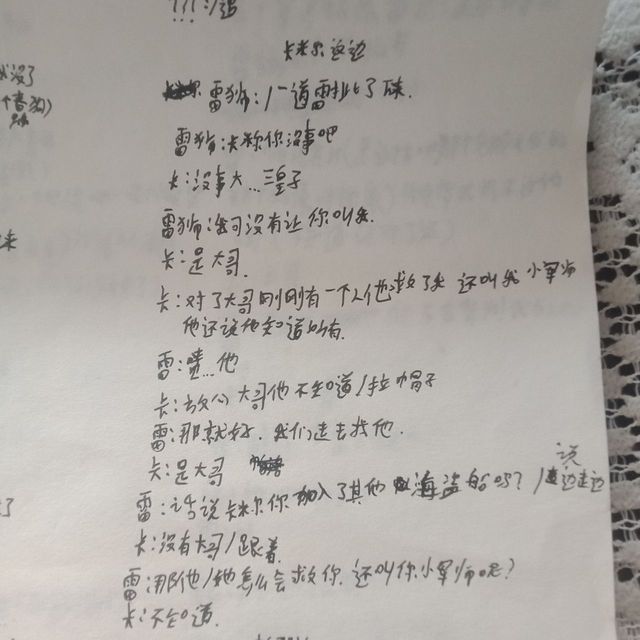 !!! :/追
卡米尔这边
雷狮:/一道雷扑了床.
雷狮:卡米尔你没事吧
卡:没事大...三皇子
雷狮:我可没有让你叫我.
卡:是大哥.
卡:对了大哥刚刚有一个人他救了我 还叫我小军师
他还说他知道所有.
雷:啧...他
卡:放心大哥他不知道/拉帽子
雷:那就好.我们走去找他.
卡:是大哥
雷:话说卡米尔你加入了其他海盗船吗?/边走边说
卡:没有大哥/跟着
雷:那他/她怎么会救你.还叫你小军师呢?
卡:不知道.